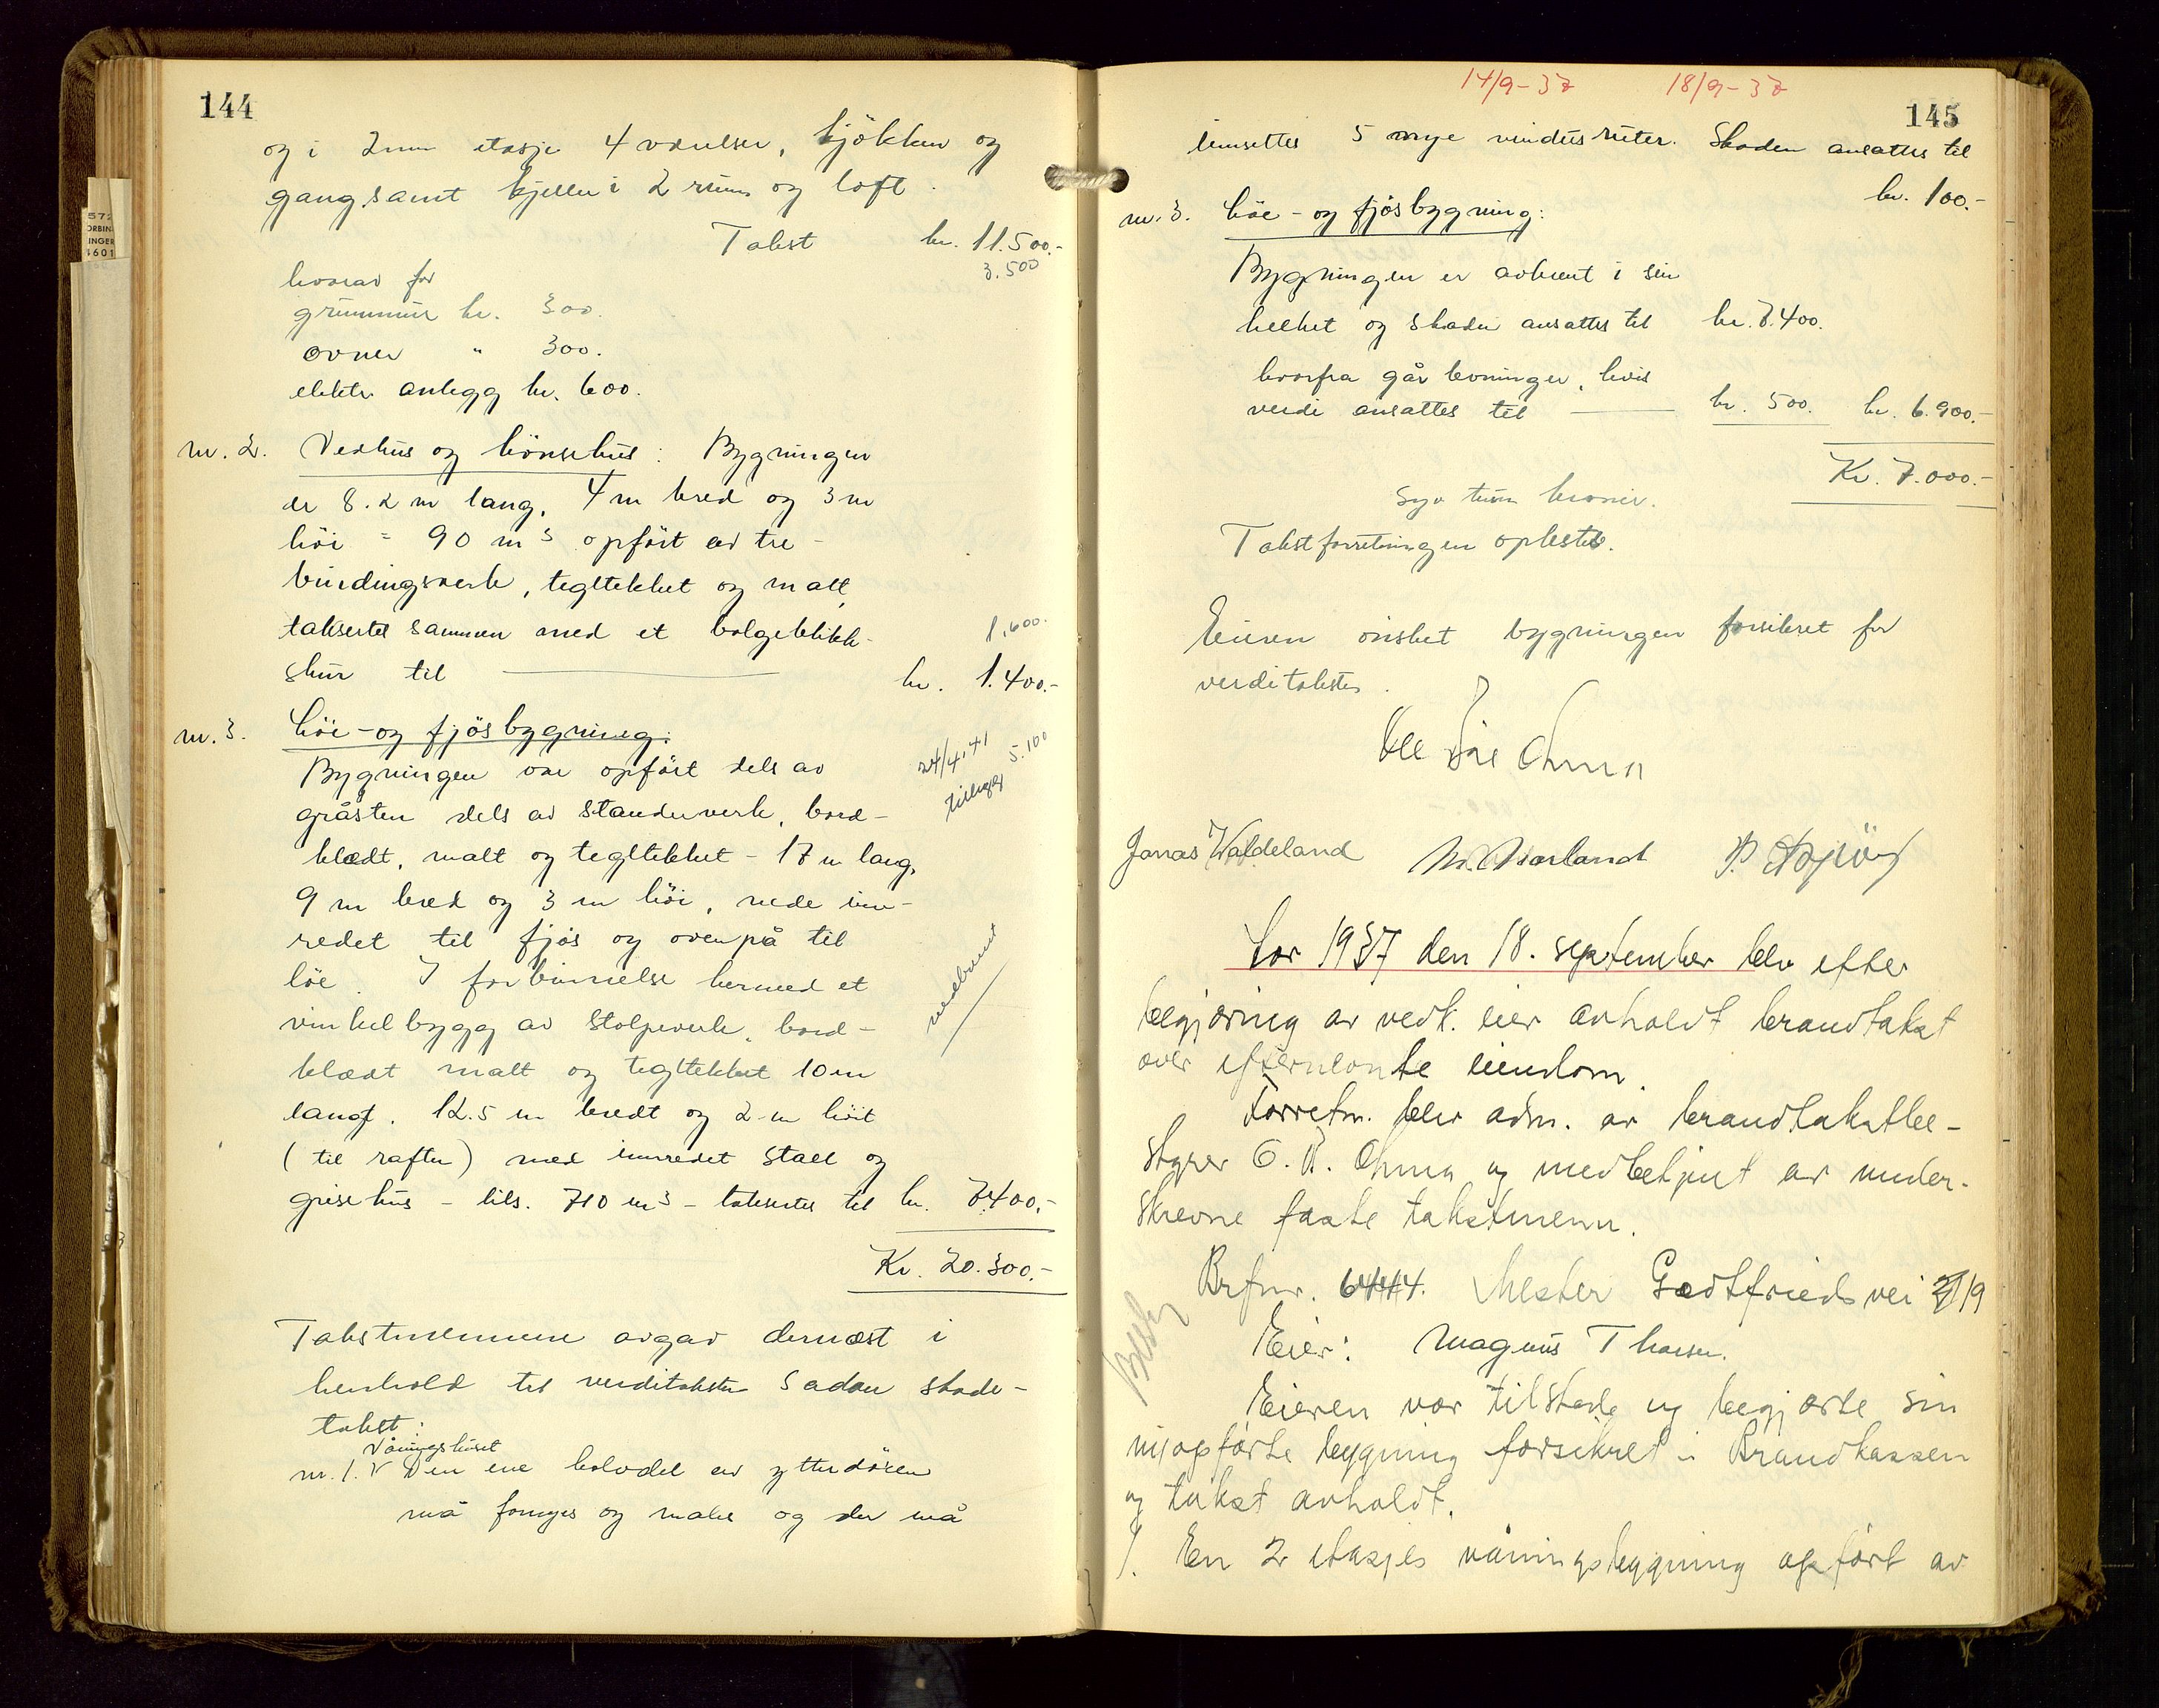 144
og i 2nen etasje 4 værelser, kjökken og
gang, samt kjeller i 2 rum og loft.
Takst kr. 11.500.-
3.500
hvorav for
grunnmur kr. 300.
ovner " 300.
elektr. anlegg kr. 600.
nr. 2. Vedhus og hönsehus: Bygningen
er 8.2 m lang, 4 m bred og 3 m
höi = 90 m3 opfört av tre-
bindingsverk, tegltekket og malt,
takseres sammen med et bølgeblikk-
1.600.
skur til kr. 1.400.-
nr. 3. Löe- og fjösbygning:
Bygningen var opfört dels av
24/4.41 5.100
tillegg
gråsten dels av standerverk, bord-
klædt, malt og tegltekket - 17 m lang,
9 m bred og 3 m höi, nede inn-
redet til fjös og ovenpå til
löe. I forbinnelse hermed et
nedbrent
vinkelbygg av stolpeverk, bord-
klædt malt og tegltekket 10 m
langt, 12.5 m bredt og 2 m höit
(til rafter) med innredet stall og
grisehus - tils. 710 m3 - takseres til kr. 7.400.-
Kr. 20.300.-
Takstmennene avgav dernæst i
henhold til verditaksten sådan skade-
takst:
Våningshuset
nr. 1. V Den ene halvdel av ytterdören
må fornyes og males og der må
14/9-37 18/9-37
145
innsettes 5 nye vindusruter. Skaden ansattes til
kr. 100.-
nr. 3. Löe- og fjösbygning:
Bygningen er avbrent i sin
helhet og skaden ansattes til kr. 7.400.
hvorfra går levninger, hvis
verdi ansattes til kr. 500. kr. 6.900.-
Kr. 7.000.-
syv tusen kroner.
Takstforretningen oplestes.
Eieren önsket bygningen forsikret for
verditaksten.
Jonas Waldeland M. Norland P.
Aar 1937 den 18. september blev efter
begjæring av vedk. eier avholdt brandtakst
over efternevnte eiendom.
Forretn. blev adm. av brandtakstbe-
styrer O. B. Ohma og medbetjent av under-
skrevne faste takstmenn.
Brfnr. 6444. Mester Godtfrieds vei 19
Besk
Eier: Magnus Thorsen.
Eieren var tilstede og begjærte sin
nyopförte bygning forsikret i Brandkassen
og takst avholdt.
1. En 2 etasjes våningsbygning opfört av